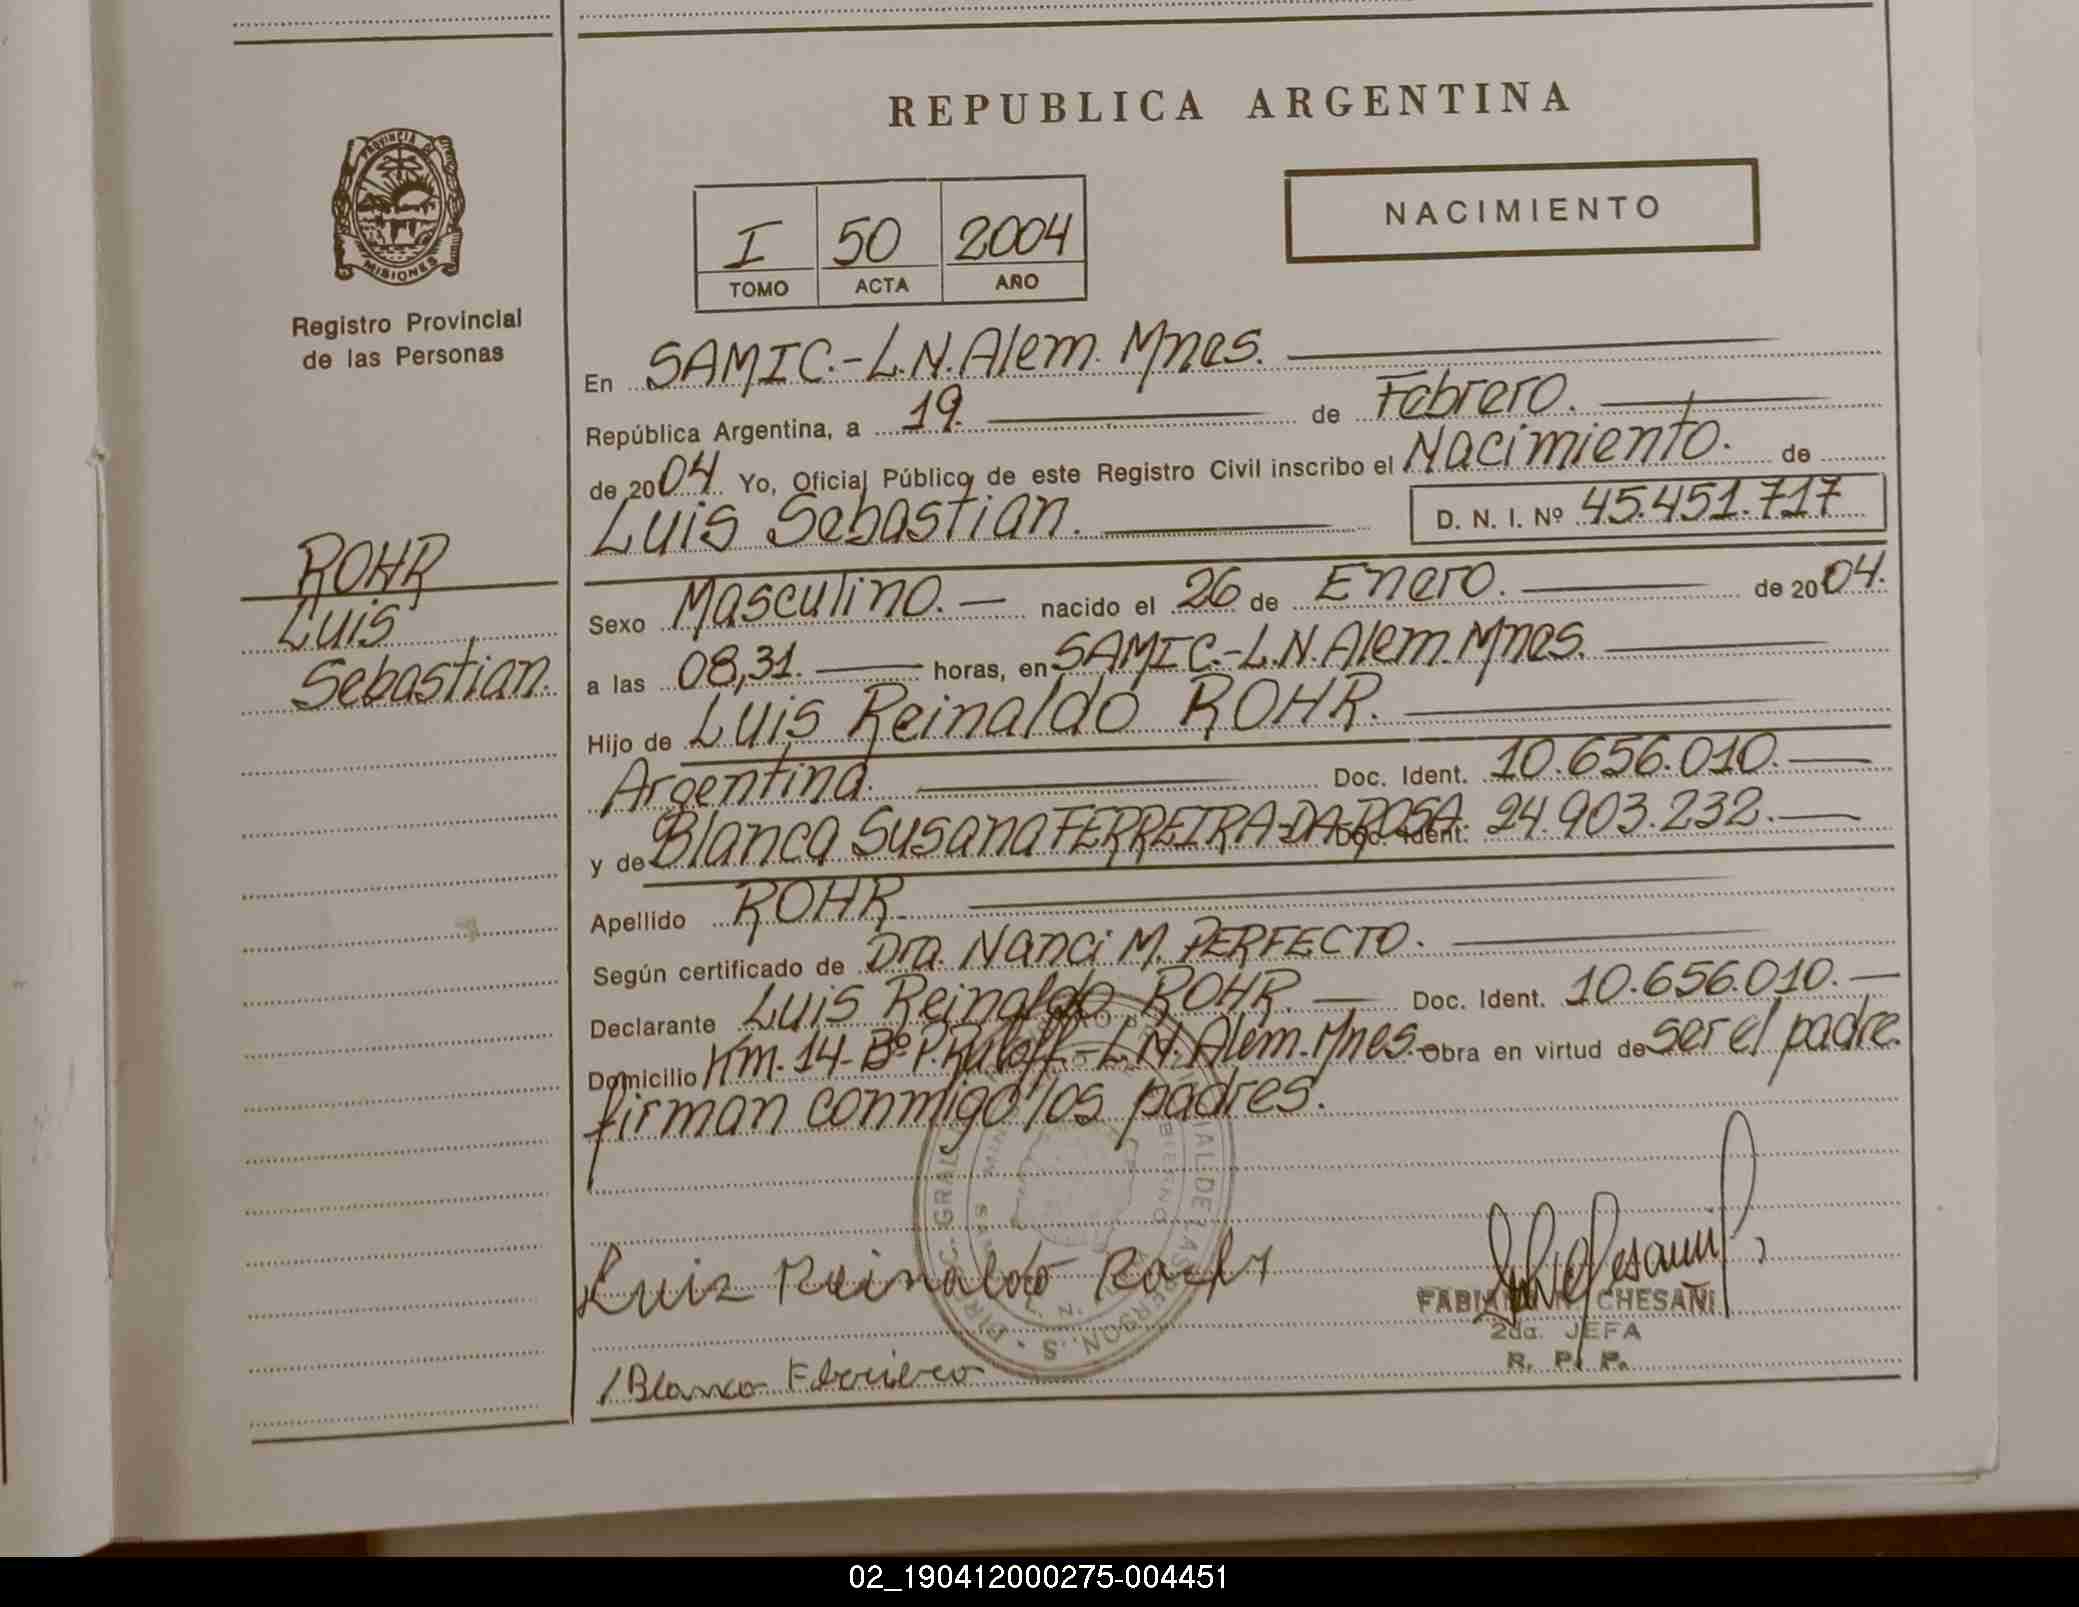 REPUBLICA ARGENTINA
PROVINCIA DE
MISIONES
Registro Provincial
de las Personas
I 50 2004
TOMO ACTA AÑO
NACIMIENTO
En SAMIC.-L.N.Alem. Mnes.
República Argentina, a 19. de Febrero.
de 2004 Yo, Oficial Público de este Registro Civil inscribo el Nacimiento. de
Luis Sebastian. D. N. I. Nº 45.451.717
ROHR
Luis
Sebastian.
Sexo Masculino. nacido el 26 de Enero. de 2004.
a las 08,31. horas, en SAMIC.-L.N.Alem.Mnes.
Hijo de Luis Reinaldo ROHR.
Argentina. Doc. Ident. 10.656.010.
y de Blanca Susana FERREIRA-DA-ROSA. Doc. Ident. 24.903.232.
Apellido ROHR.
Según certificado de Dra. Nanci M. PERFECTO.
Declarante Luis Reinaldo ROHR. Doc. Ident. 10.656.010.
Domicilio Km. 14-Bº P. -L.N. Alem.-Mnes. Obra en virtud de ser el padre.
firman conmigo los padres.
Luiz Reinaldo
Blanca
CHESAÑI
2da. JEFA
R. P. P.
02_190412000275-004451